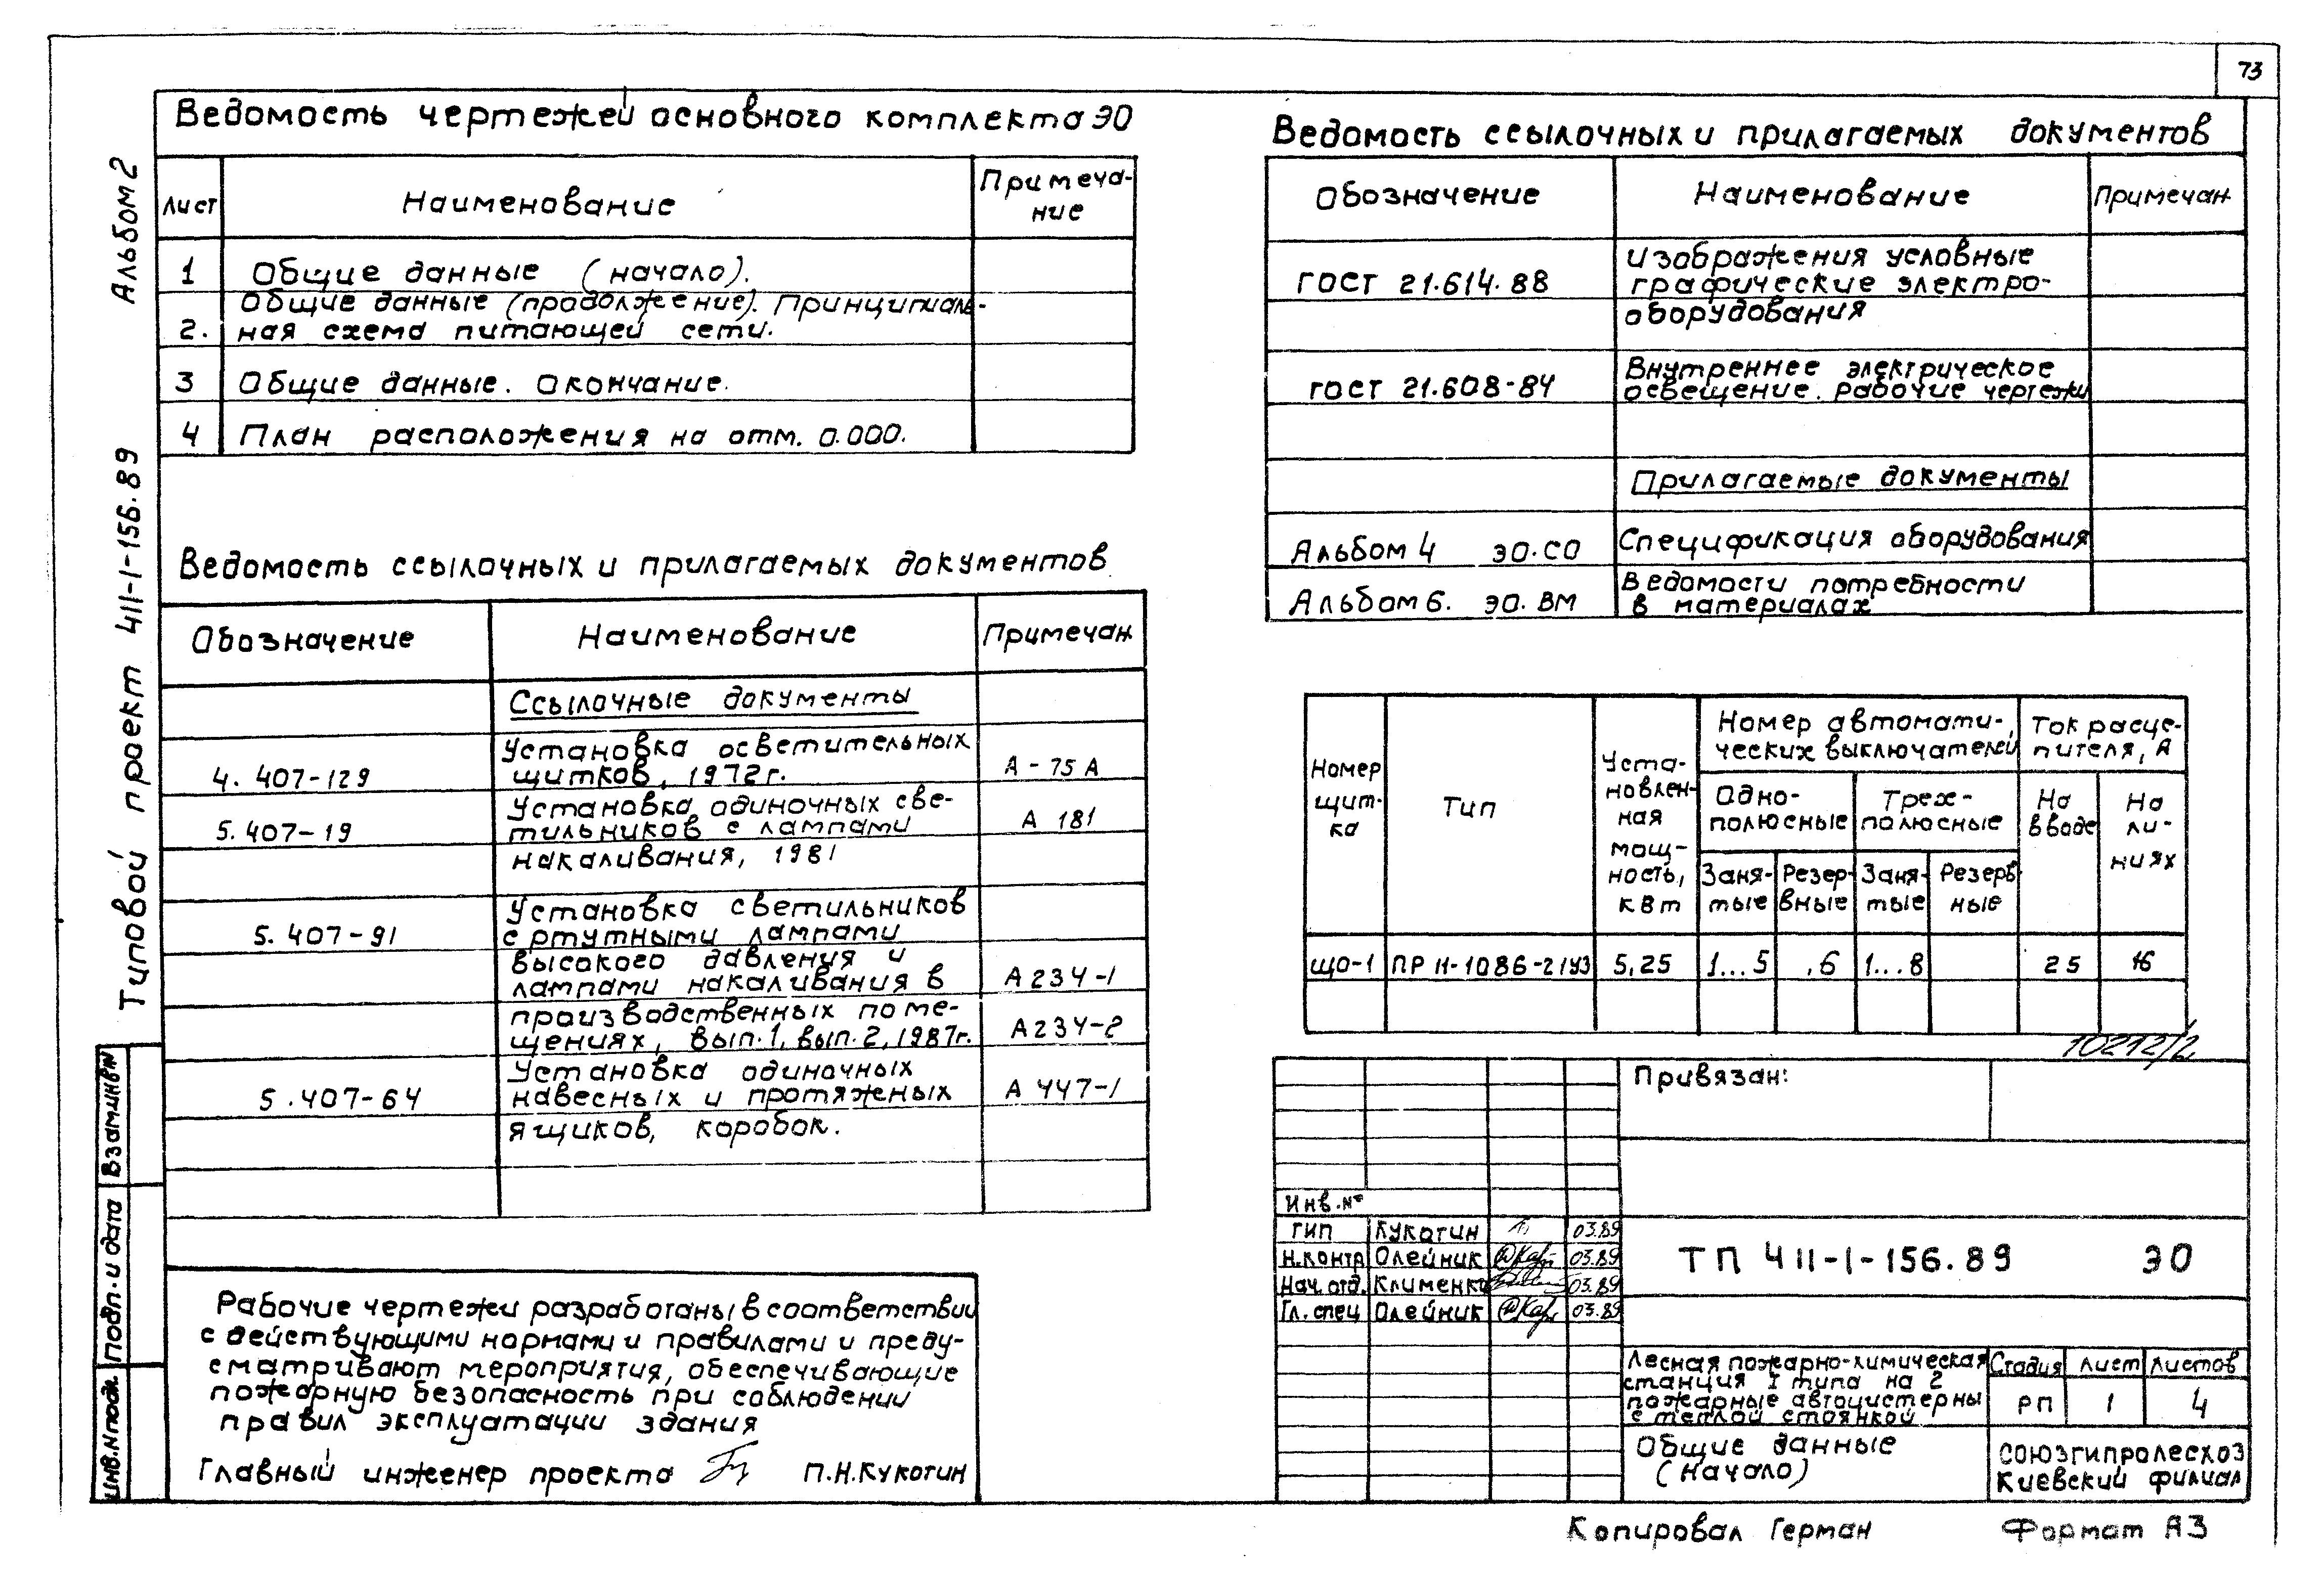 73
Альбом 2
Типовой проект 411-1-156.89
Взам.инв.№
Подп. и дата
Инв.№подл.
Ведомость чертежей основного комплекта ЭО
Лист Наименование Примеча-
ние
1 Общие данные (начало).
Общие данные (продолжение). Принципиаль-
2. ная схема питающей сети.
3 Общие данные. Окончание.
4 План расположения на отм. 0.000.
Ведомость ссылочных и прилагаемых документов
Обозначение Наименование Примечан.
Ссылочные документы
Установка осветительных
4.407-129 щитков, 1972г. А-75А
Установка одиночных све-
5.407-19 тильников с лампами А 181
накаливания, 1981
Установка светильников
5.407-91 с ртутными лампами
высокого давления и
лампами накаливания в А234-1
производственных поме-
щениях, вып.1, вып.2, 1987г. А234-2
Установка одиночных
5.407-64 навесных и протяженых А 447-1
ящиков, коробок.
Рабочие чертежи разработаны в соответствии
с действующими нормами и правилами и преду-
сматривают мероприятия, обеспечивающие
пожарную безопасность при соблюдении
правил эксплуатации здания
Главный инженер проекта П.Н.Кукотин
Ведомость ссылочных и прилагаемых документов
Обозначение Наименование Примечан.
Изображения условные
ГОСТ 21.614.88 графические электро-
оборудования
Внутреннее электрическое
ГОСТ 21.608-84 освещение. Рабочие чертежи
Прилагаемые документы
Альбом 4 ЭО.СО Спецификация оборудования
Ведомости потребности
Альбом 6. ЭО.ВМ в материалах
Номер щит-ка
Тип
Уста-новлен-ная мощ-ность, кВт
Номер автомати-ческих выключателей
Ток расце-пителя, А
Одно-полюсные
Трех-полюсные
На вводе
На ли-ниях
Заня-тые Резер-вные Заня-тые Резерв-ные
ЩО-1 ПР 11-1086-21У3 5,25 1...5 6 1...8 25 16
10212/2
Привязан:
Инв.№
ГИП Кукотин 03.89
Н.контр Олейник 03.89
Нач. отд. Клименко 03.89
Гл. спец Олейник 03.89
ТП 411-1-156.89 ЭО
Лесная пожарно-химическая
станция I типа на 2
пожарные автоцистерны
с теплой стоянкой
Стадия Лист Листов
РП 1 4
Общие данные
(начало)
Союзгипролесхоз
Киевский филиал
Копировал Герман Формат А3